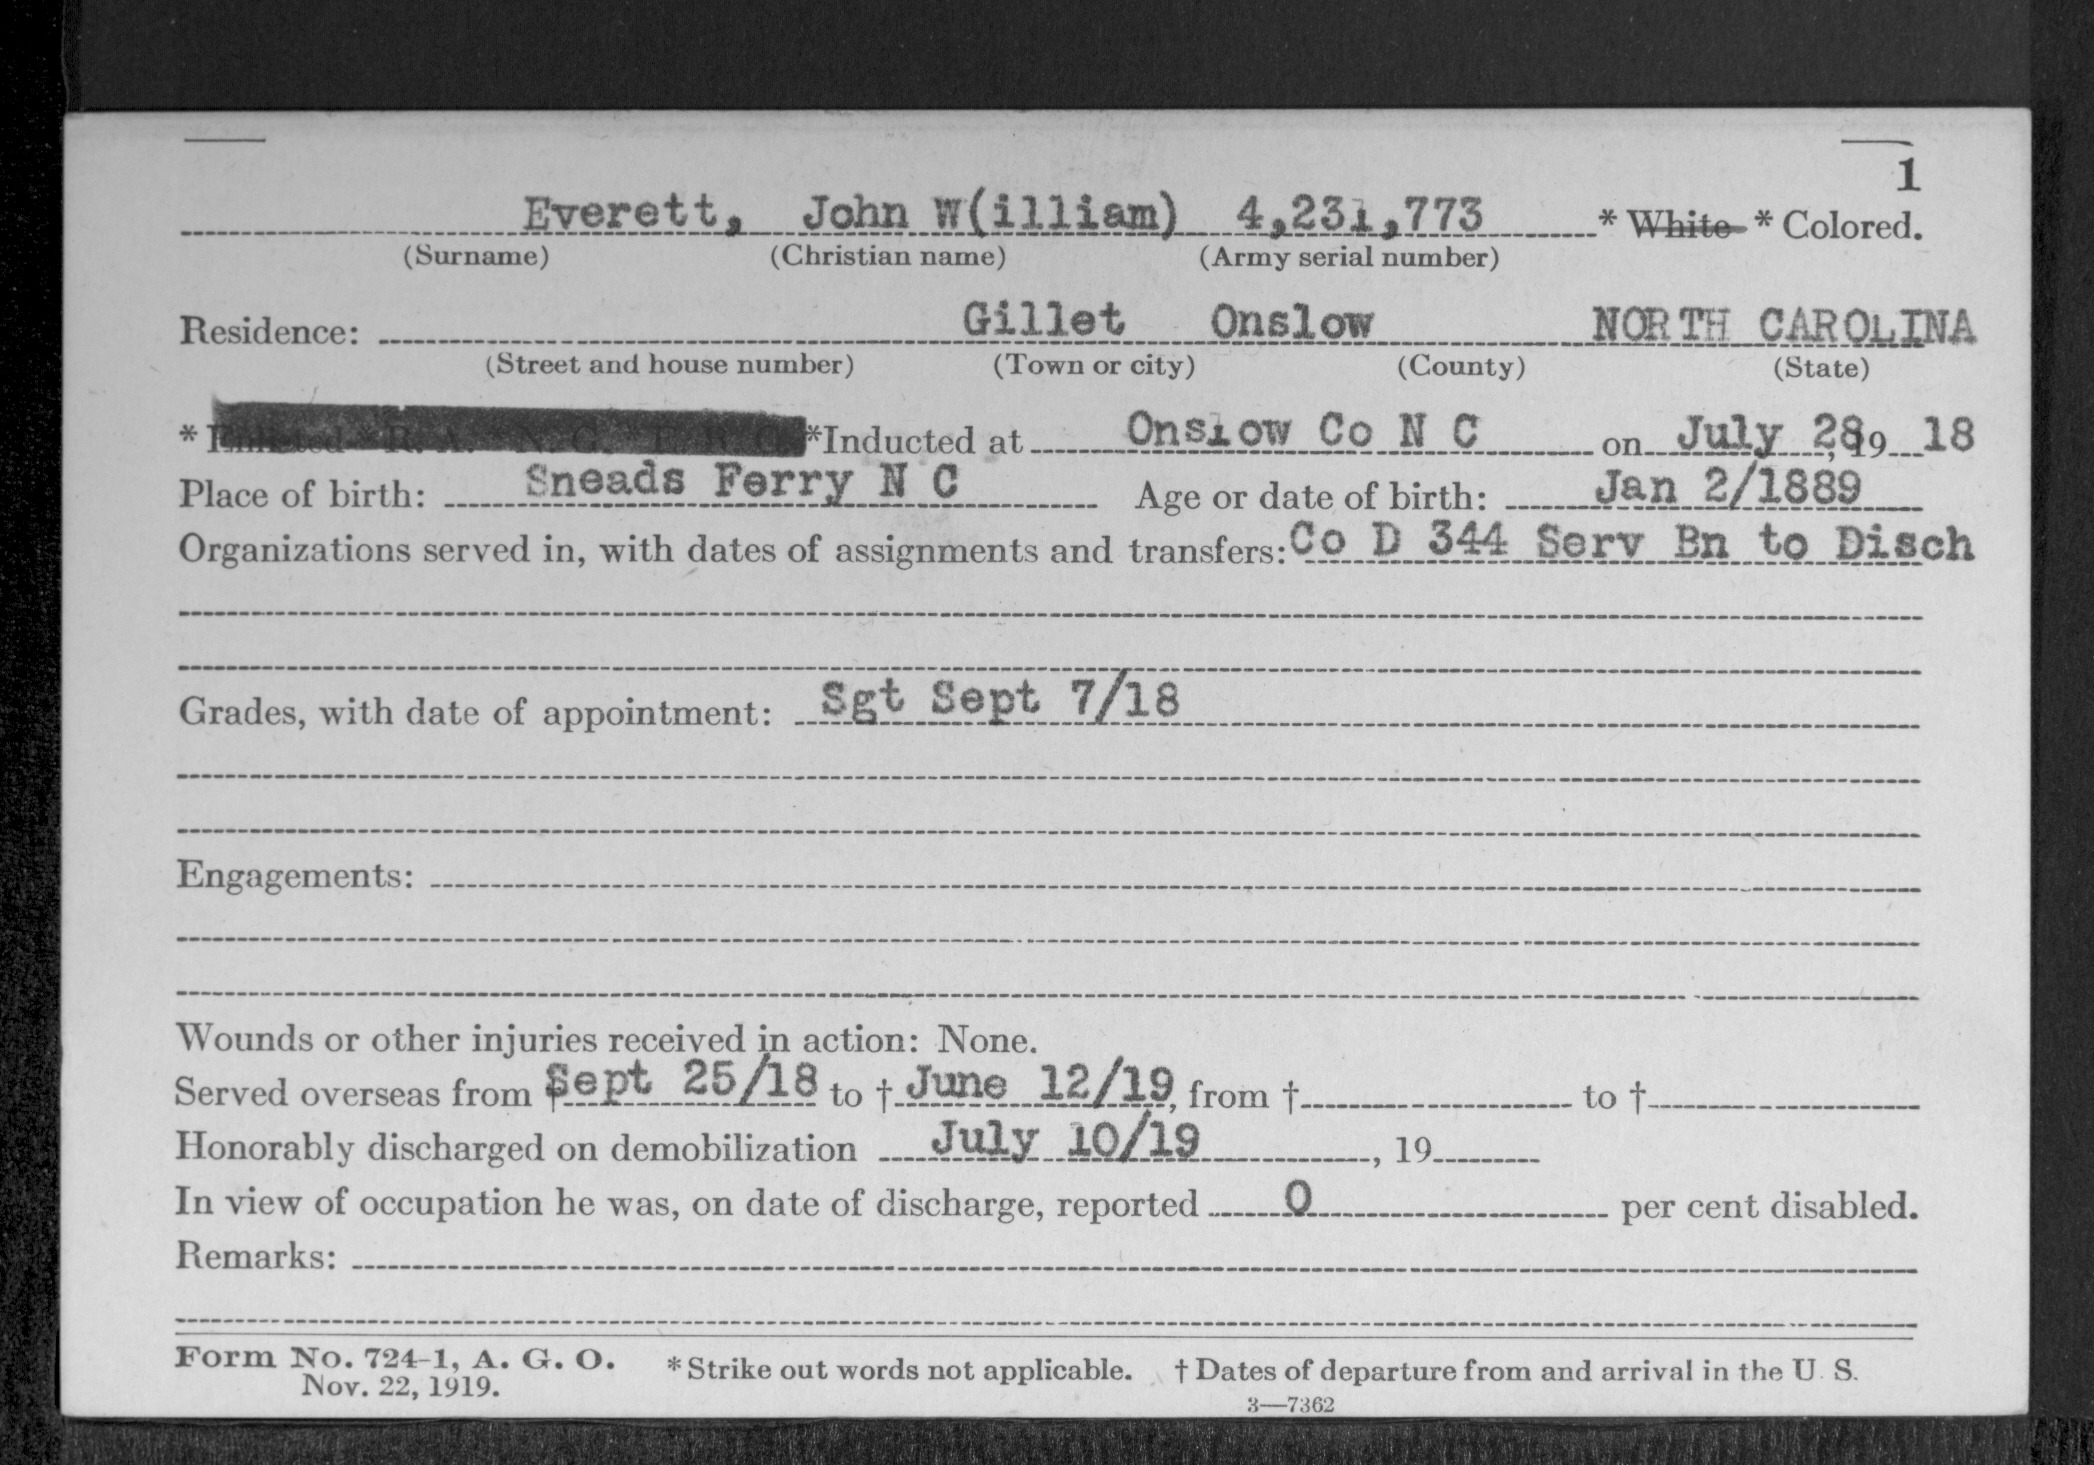 1
Everett, John W(illiam) 4,231,773 * White * Colored.
(Surname) (Christian name) (Army serial number)
Residence: Gillet Onslow NORTH CAROLINA
(Street and house number) (Town or city) (County) (State)
* Enlisted * R. A. N. G. * E. R. C. *Inducted at Onslow Co N C on July 28, 19 18
Place of birth: Sneads Ferry N C Age or date of birth: Jan 2/1889
Organizations served in, with dates of assignments and transfers: Co D 344 Serv Bn to Disch
Grades, with date of appointment: Sgt Sept 7/18
Engagements:
Wounds or other injuries received in action: None.
Served overseas from † Sept 25/18 to † June 12/19, from † to †
Honorably discharged on demobilization July 10/19, 19
In view of occupation he was, on date of discharge, reported 0 per cent disabled.
Remarks:
Form No. 724-1, A. G. O. * Strike out words not applicable. † Dates of departure from and arrival in the U. S.
Nov. 22, 1919.
3—7362